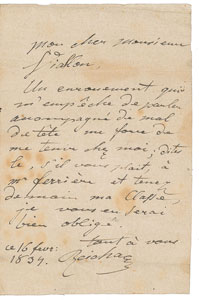 mon cher monsieur
Un enrouement qui
m'empêche de parler
accompagné de mal
de tête me force de
me tenir chez moi, dites
le, s'il vous plait, à
mr ferrière et tenez
demain ma classe,
je vous en serai
bien obligé.
tout à vous
ce 16 fevr:
1834.